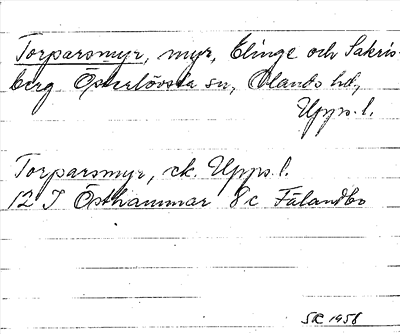 Torparsmyr, myr, Elinge och Sakris-
berg Österlövsta sn, Olands hd,
Upps. l.
Torparsmyr, ek. Upps. l.
12 I Östhammar 8 c Fälandbo
SR 1958